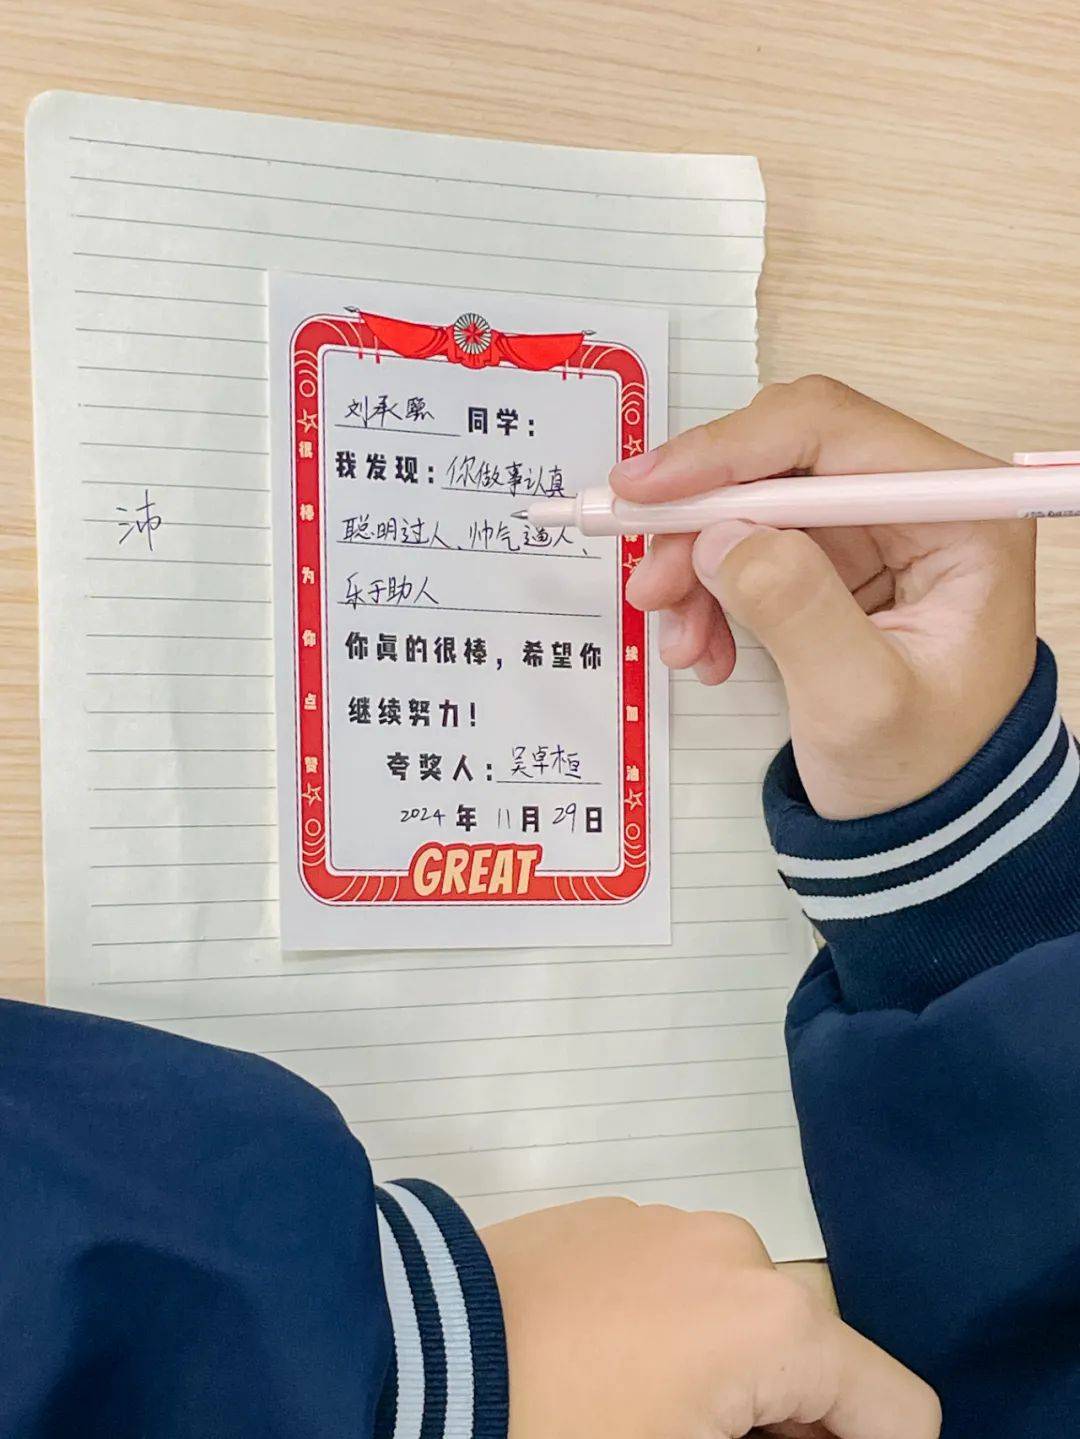 刘承聪 同学：
我发现：你做事认真
聪明过人、帅气逼人、
乐于助人
你真的很棒，希望你
继续努力！
夸奖人：吴卓桓
2024年 11月 29日
GREAT
很棒为你点赞
续加油
沛